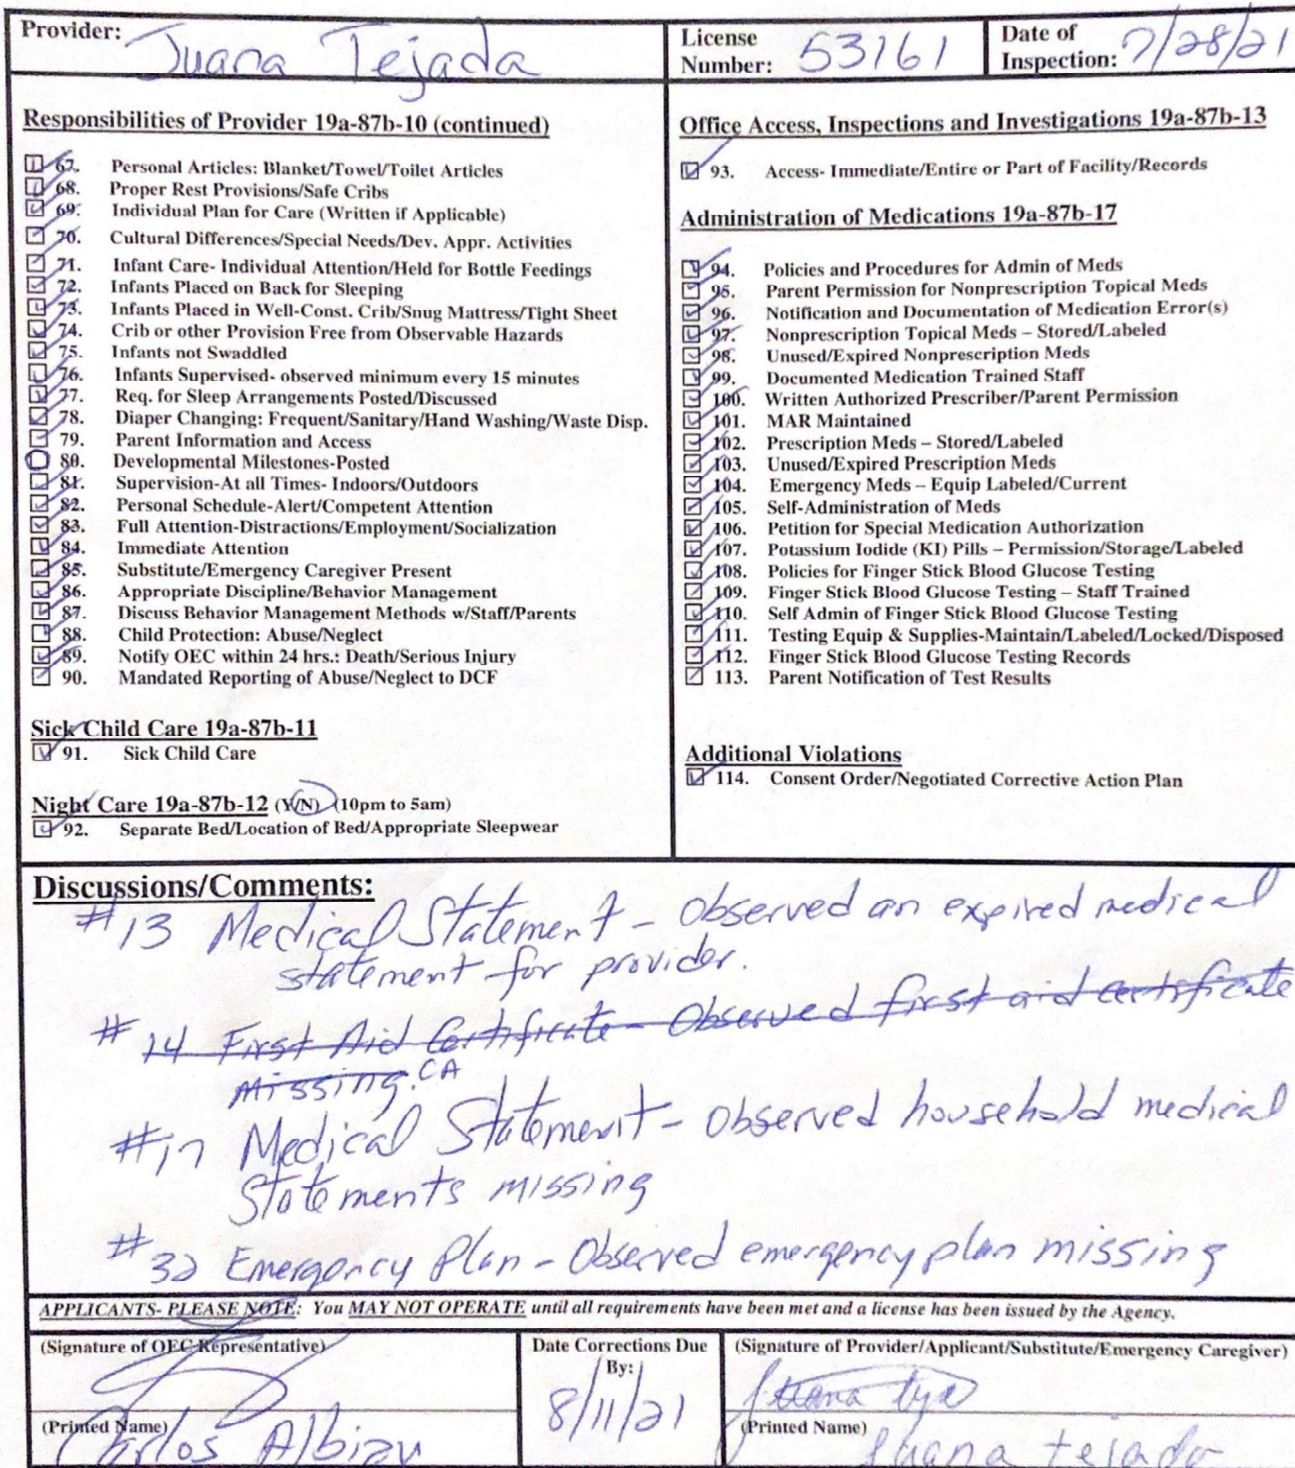 Provider: Juana Tejada
License Number: 53161
Date of Inspection: 7/28/21
Responsibilities of Provider 19a-87b-10 (continued)
67. Personal Articles: Blanket/Towel/Toilet Articles
68. Proper Rest Provisions/Safe Cribs
69. Individual Plan for Care (Written if Applicable)
70. Cultural Differences/Special Needs/Dev. Appr. Activities
71. Infant Care- Individual Attention/Held for Bottle Feedings
72. Infants Placed on Back for Sleeping
73. Infants Placed in Well-Const. Crib/Snug Mattress/Tight Sheet
74. Crib or other Provision Free from Observable Hazards
75. Infants not Swaddled
76. Infants Supervised- observed minimum every 15 minutes
77. Req. for Sleep Arrangements Posted/Discussed
78. Diaper Changing: Frequent/Sanitary/Hand Washing/Waste Disp.
79. Parent Information and Access
80. Developmental Milestones-Posted
81. Supervision-At all Times- Indoors/Outdoors
82. Personal Schedule-Alert/Competent Attention
83. Full Attention-Distractions/Employment/Socialization
84. Immediate Attention
85. Substitute/Emergency Caregiver Present
86. Appropriate Discipline/Behavior Management
87. Discuss Behavior Management Methods w/Staff/Parents
88. Child Protection: Abuse/Neglect
89. Notify OEC within 24 hrs.: Death/Serious Injury
90. Mandated Reporting of Abuse/Neglect to DCF
Sick Child Care 19a-87b-11
91. Sick Child Care
Night Care 19a-87b-12 (Y/N) (10pm to 5am)
92. Separate Bed/Location of Bed/Appropriate Sleepwear
Office Access, Inspections and Investigations 19a-87b-13
93. Access- Immediate/Entire or Part of Facility/Records
Administration of Medications 19a-87b-17
94. Policies and Procedures for Admin of Meds
95. Parent Permission for Nonprescription Topical Meds
96. Notification and Documentation of Medication Error(s)
97. Nonprescription Topical Meds – Stored/Labeled
98. Unused/Expired Nonprescription Meds
99. Documented Medication Trained Staff
100. Written Authorized Prescriber/Parent Permission
101. MAR Maintained
102. Prescription Meds – Stored/Labeled
103. Unused/Expired Prescription Meds
104. Emergency Meds – Equip Labeled/Current
105. Self-Administration of Meds
106. Petition for Special Medication Authorization
107. Potassium Iodide (KI) Pills – Permission/Storage/Labeled
108. Policies for Finger Stick Blood Glucose Testing
109. Finger Stick Blood Glucose Testing – Staff Trained
110. Self Admin of Finger Stick Blood Glucose Testing
111. Testing Equip & Supplies-Maintain/Labeled/Locked/Disposed
112. Finger Stick Blood Glucose Testing Records
113. Parent Notification of Test Results
Additional Violations
114. Consent Order/Negotiated Corrective Action Plan
Discussions/Comments:
#13 Medical Statement - Observed an expired medical
statement for provider.
#14 First Aid Certificate - Observed first aid certificate
missing. CA
#17 Medical Statement - Observed household medical
statements missing
#32 Emergency Plan - Observed emergency plan missing
APPLICANTS- PLEASE NOTE: You MAY NOT OPERATE until all requirements have been met and a license has been issued by the Agency.
(Signature of OEC Representative)
(Printed Name) Carlos Albizu
Date Corrections Due By: 8/11/21
(Signature of Provider/Applicant/Substitute/Emergency Caregiver)
(Printed Name) Juana tejada